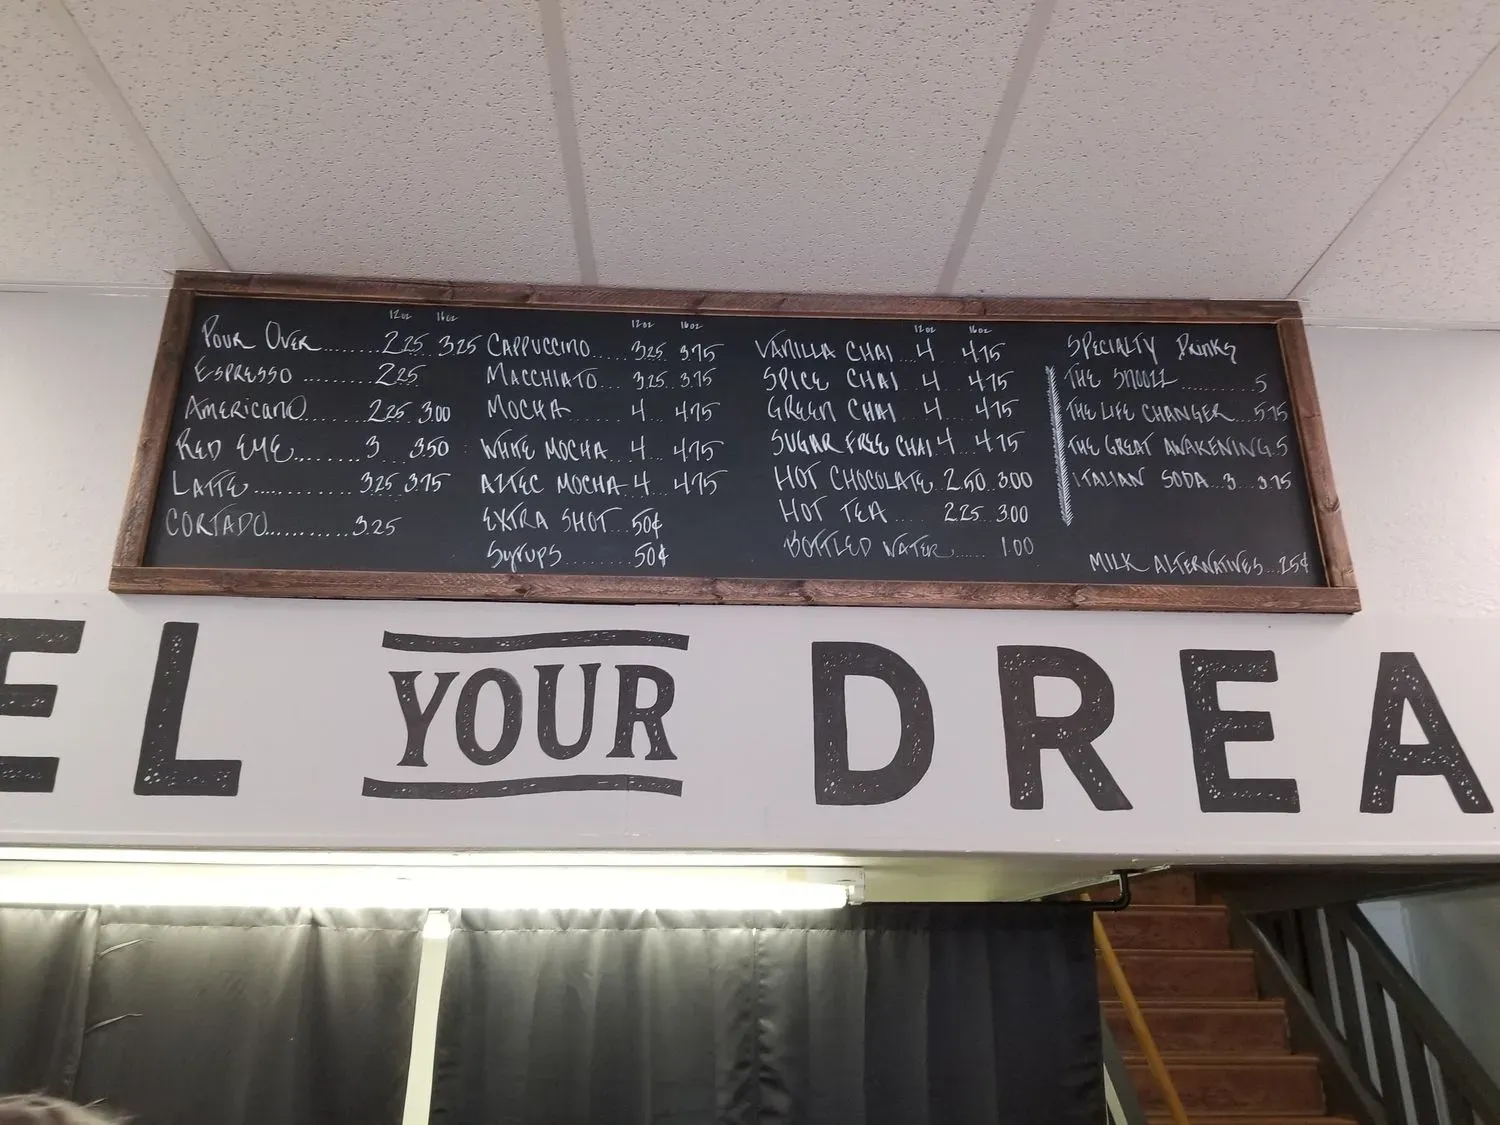 12oz 16oz
Pour Over.......2.25 3.25
Espresso........2.25
Americano.......2.25 3.00
Red Eye........3 3.50
Latte...........3.25 3.75
Cortado..........3.25
12oz 16oz
Cappuccino.....3.25..3.75
Macchiato...3.25..3.75
Mocha......4...4.75
White Mocha..4...4.75
Aztec Mocha..4...4.75
Extra Shot..50¢
Syrups........50¢
12oz 16oz
Vanilla Chai...4...4.75
Spice Chai...4...4.75
Green Chai...4...4.75
Sugar Free Chai 4...4.75
Hot Chocolate 2.50..3.00
Hot Tea.....2.25..3.00
Bottled Water......1.00
Specialty Drinks
The Snooze..........5
The Life Changer...5.75
The Great Awakening.5
Italian Soda...3...3.75
Milk Alternatives...25¢
EL YOUR DREA